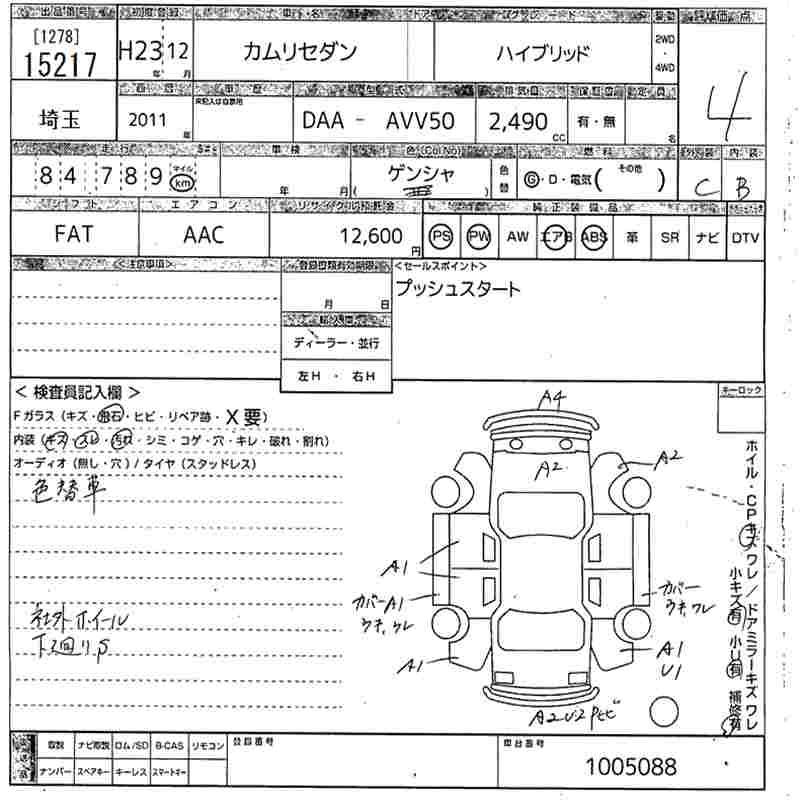 出品番号 初度登録 車名 ドア グレード 駆動 評価点
[1278]
15217
H23 年 12 月
カムリセダン
ハイブリッド
2WD
・
4WD
4
車歴 型式 排気量 定員
埼玉
2011 年
未記入は自家用
DAA - AVV50
2,490 cc
有・無
名
走行 車検 色(Col No) 燃料 外装 内装
84,789 マイル km
年 月
( ゲンシャ )
色替
G・D・電気( その他 )
C
B
シフト エアコン リサイクル預託金 純正装備品
FAT
AAC
12,600 円
PS PW AW エアB ABS 革 SR ナビ DTV
<注意事項>
登録書類有効期限
月 日
輸入車
ディーラー・並行
左H ・ 右H
<セールスポイント>
プッシュスタート
キーロック
< 検査員記入欄 >
Fガラス(キズ・飛石・ヒビ・リペア跡・X要)
内装(キズ・スレ・汚れ・シミ・コゲ・穴・キレ・破れ・割れ)
オーディオ(無し・穴)/タイヤ(スタッドレス)
色替車
社外ホイール
下廻りS
A4
A2
A2
A1
カバーA1
ウキ,ワレ
カバー
ウキ,ワレ
A1
A1
U1
A2 U2 Pヒビ
ホイル・CPキズワレ/ドアミラーキズワレ
小キズ有 小U有 補修有
発送品
取説 ナビ取説 ロム/SD B-CAS リモコン
ナンバー スペアキー キーレス スマートキー
登録番号
車台番号
1005088